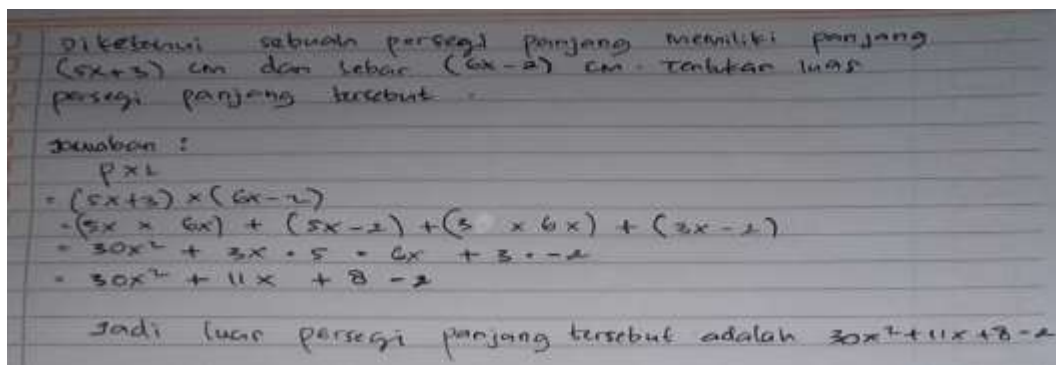 Diketahui sebuah persegi panjang memiliki panjang
(5x+3) cm dan lebar (6x-2) cm. Tentukan luas
persegi panjang tersebut.
Jawaban :
P x L
= (5x+3) x (6x-2)
= (5x x 6x) + (5x-2) + (3 x 6x) + (3x-2)
= 30x² + 3x · 5 = 6x + 3 · -2
= 30x² + 11x + 8 - 2
Jadi luas persegi panjang tersebut adalah 30x²+11x+8-2